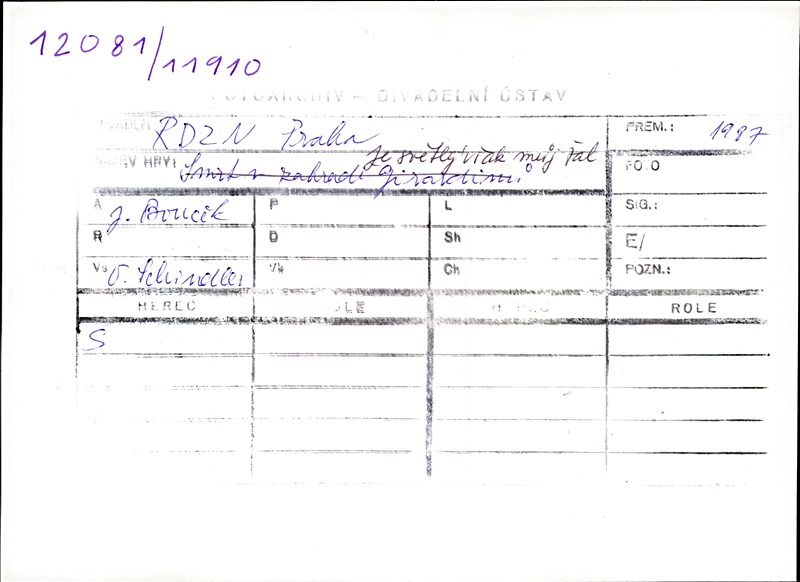 12081/11910
FOTOARCHIV – DIVADELNÍ ÚSTAV
DIVADLO RDZN Praha PREM.: 1987
Je světlý však můj žal
NÁZEV HRY: Smrt v zahradě Girardinů FOTO
A J. Boučik P L SIG.:
R D Sh E/
Vs O. Schindler Vk Ch POZN.:
HEREC ROLE HEREC ROLE
S